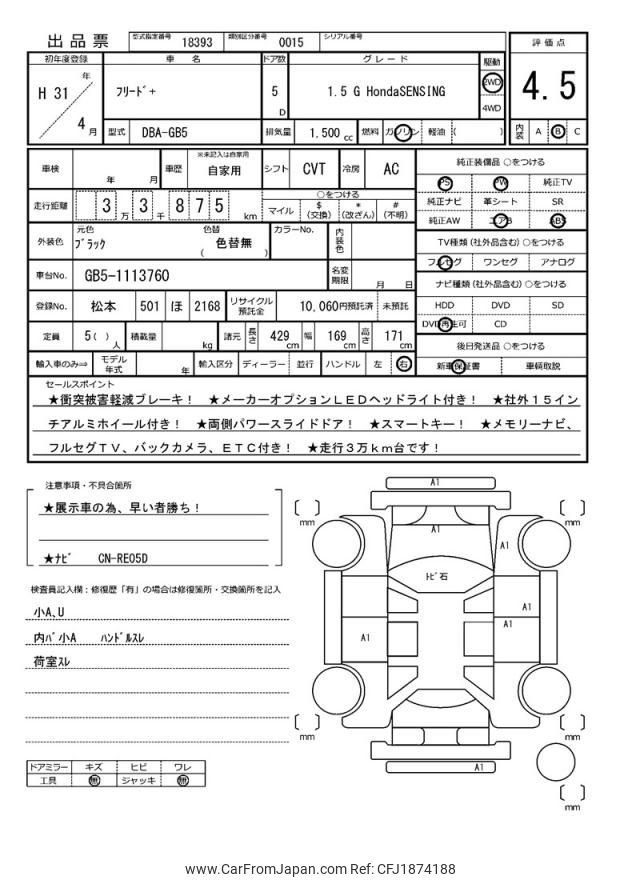 出品票
型式指定番号 18393 類別区分番号 0015 シリアル番号
評価点
4.5
内装 A B C
初年度登録 車名 ドア数 グレード 駆動
H 31 年 4 月
フリード+
5 D
1.5 G HondaSENSING
2WD
4WD
型式 DBA-GB5 排気量 1,500 cc 燃料 ガソリン 軽油 ( )
車検 年 月 車歴 ※未記入は自家用 自家用 シフト CVT 冷房 AC
走行距離 3 万 3 千 8 7 5 km
○をつける
マイル $(交換) *(改ざん) #(不明)
外装色 元色 ブラック 色替 ( 色替無 ) カラーNo. 内装色
車台No. GB5-1113760 名変期限 月 日
登録No. 松本 501 ほ 2168 リサイクル預託金 10,060円預託済 未預託
定員 5( ) 人 積載量 kg 諸元 長さ 429 cm 幅 169 cm 高さ 171 cm
輸入車のみ⇒ モデル年式 年 輸入区分 ディーラー 並行 ハンドル 左 右
純正装備品 ○をつける
PS PW 純正TV
純正ナビ 革シート SR
純正AW エアB ABS
TV種類(社外品含む) ○をつける
フルセグ ワンセグ アナログ
ナビ種類(社外品含む) ○をつける
HDD DVD SD
DVD再生可 CD
後日発送品 ○をつける
新車保証書 車輌取説
セールスポイント
★衝突被害軽減ブレーキ！ ★メーカーオプションLEDヘッドライト付き！ ★社外15イン
チアルミホイール付き！ ★両側パワースライドドア！ ★スマートキー！ ★メモリーナビ、
フルセグTV、バックカメラ、ETC付き！ ★走行3万km台です！
注意事項・不具合箇所
★展示車の為、早い者勝ち！
★ナビ CN-RE05D
検査員記入欄：修復歴「有」の場合は修復箇所・交換箇所を記入
小A、U
内バ小A ハンドルスレ
荷室スレ
ドアミラー キズ ヒビ ワレ
工具 無 ジャッキ 無
A1
A1
A1
トビ石
A1
A1
A1
A1
mm
mm
mm
mm
mm
www.CarFromJapan.com Ref: CFJ1874188